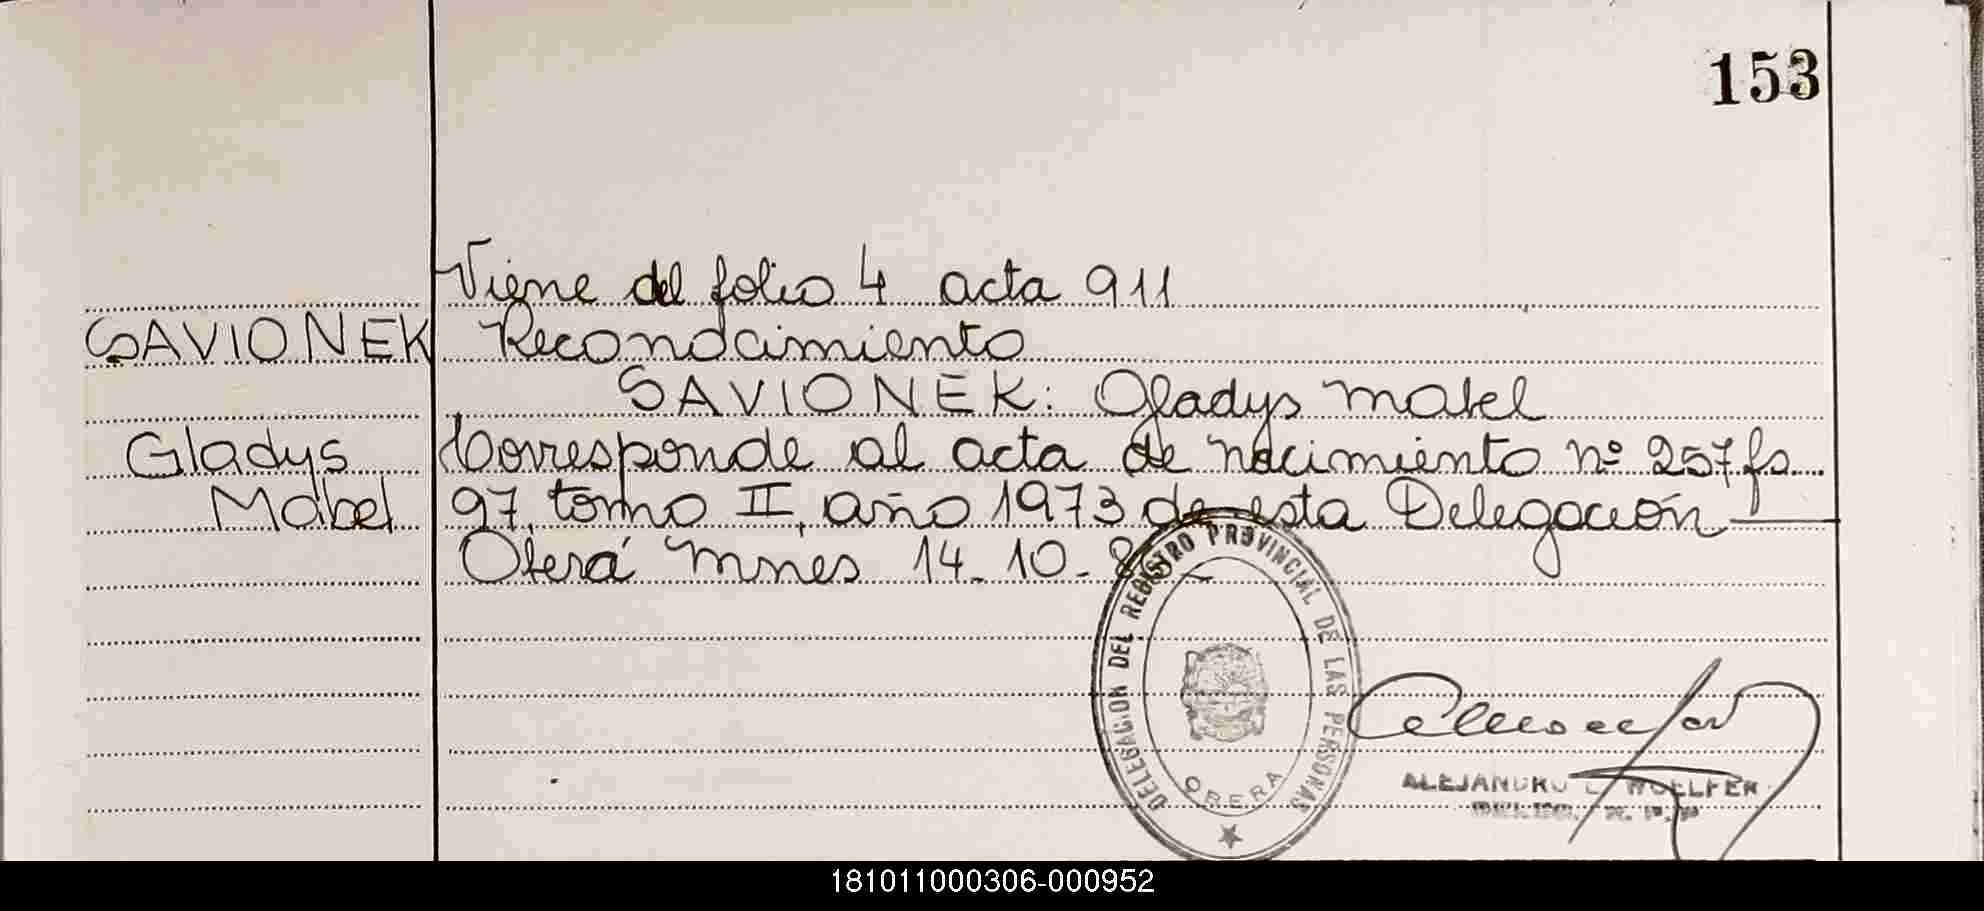 153
Viene del folio 4 acta 911
SAVIONEK Recondcimiento
SAVIONEK: Gladys Mabel
Gladys Corresponde al acta de nacimiento nº 257 fs
Mabel 97, tomo II, año 1973 de esta Delegación
Oberá Mnes 14-10-8
DELEGACION DEL REGISTRO PROVINCIAL DE LAS PERSONAS
OBERA
ALEJANDRO WOELFER
181011000306-000952